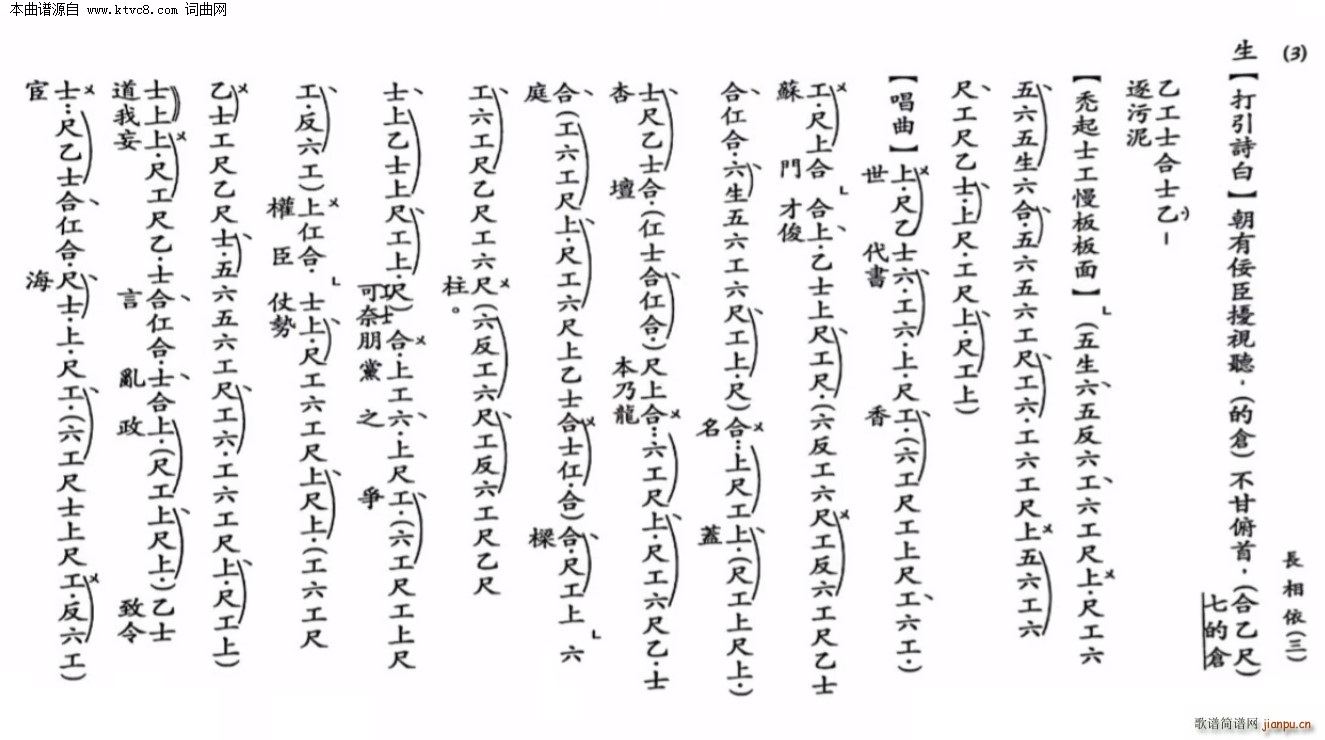 本曲谱源自 www.ktvc8.com 词曲网
(3)
長相依(三)
生【打引詩白】朝有佞臣擾視聽，(的倉)不甘俯首，(合乙尺)
七的倉
乙工士合士乙
逐污泥
【禿起士工慢板板面】(五生六五反六工六工尺上·尺工六
五六五生六合·五六五六工尺工六·工六工尺上五六工六
尺工尺乙士·上尺·工尺上·尺工上)
【唱曲】上·尺乙士六·工六·上·尺工·(六工尺工上尺工六工·)
世 代書 香
工·尺上合 合上·乙士上尺工尺·(六反工六尺工反六工尺乙士
蘇 門 才俊
合仜合·六生五六工六尺工上·尺)合…上尺工上·(尺工上尺上·)
名 蓋
士尺乙士合·(仜士合仜合·)尺上合…六工尺上·尺工六尺乙·士
杏 壇 本乃龍
合(工六工尺上·尺工六尺上乙士合士仜·合)合·尺工上 六
庭 樑
工六工尺乙尺工六尺(六反工六尺工反六工尺乙尺
柱。
士上乙士上尺工上·尺)合·上工六·上尺工·(六工尺工上尺
可奈朋黨 之 爭
工·反六工)上仜合· 士上·尺工六工尺上·尺上·(工六工尺
權臣 仗勢
乙士工尺乙尺士·五六五六工尺工六·工六工尺上·尺工上)
士上上·尺工尺乙·士合仜合·士合上·(尺工上尺上·)乙士
道我妄 言 亂 政 致令
士…尺乙士合仜合·尺士·上·尺工·(六工尺士上尺工·反六工)
宦 海
歌谱简谱网 jianpu.cn